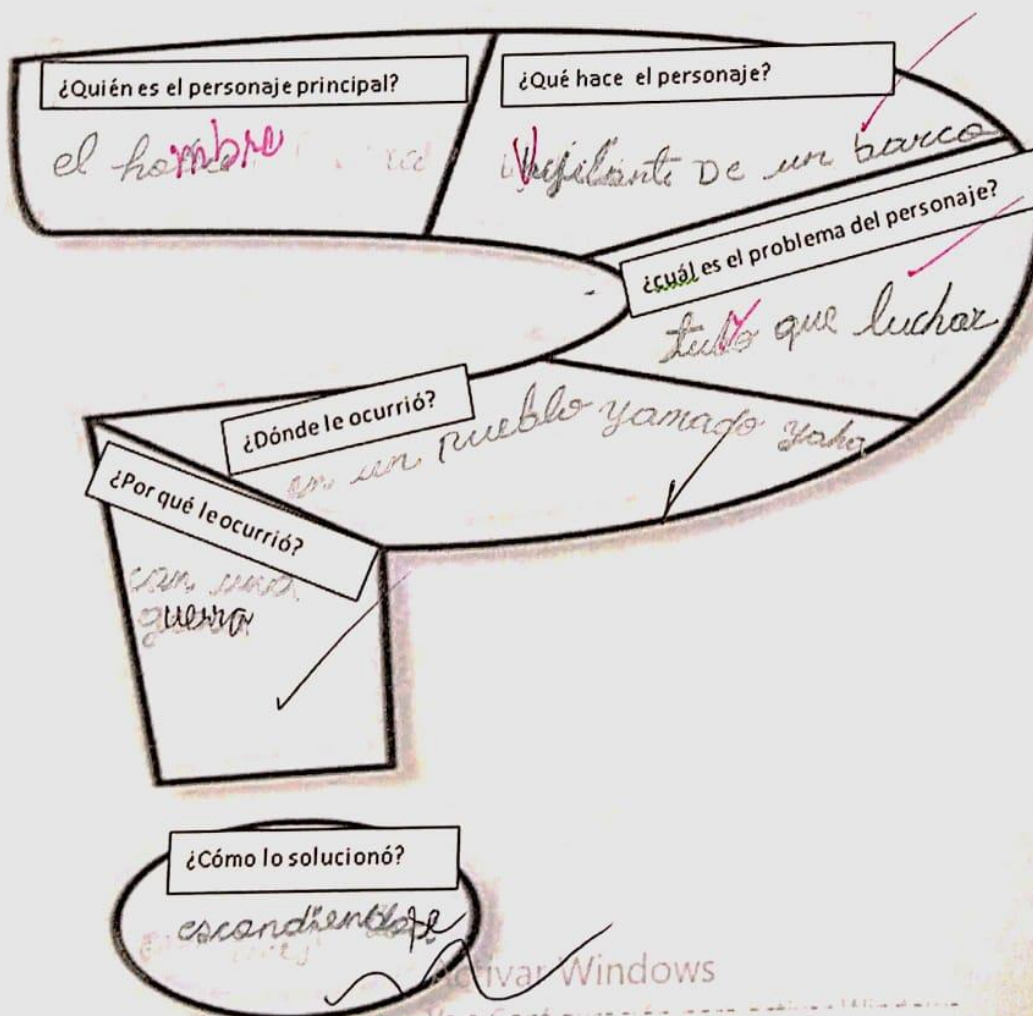 ¿Quién es el personaje principal?
el hombre
¿Qué hace el personaje?
Vigilante De un barco
¿cuál es el problema del personaje?
tuvo que luchar
¿Dónde le ocurrió?
en un pueblo yamado yaha
¿Por qué le ocurrió?
con una
guerra
¿Cómo lo solucionó?
escondiendose
Activar Windows